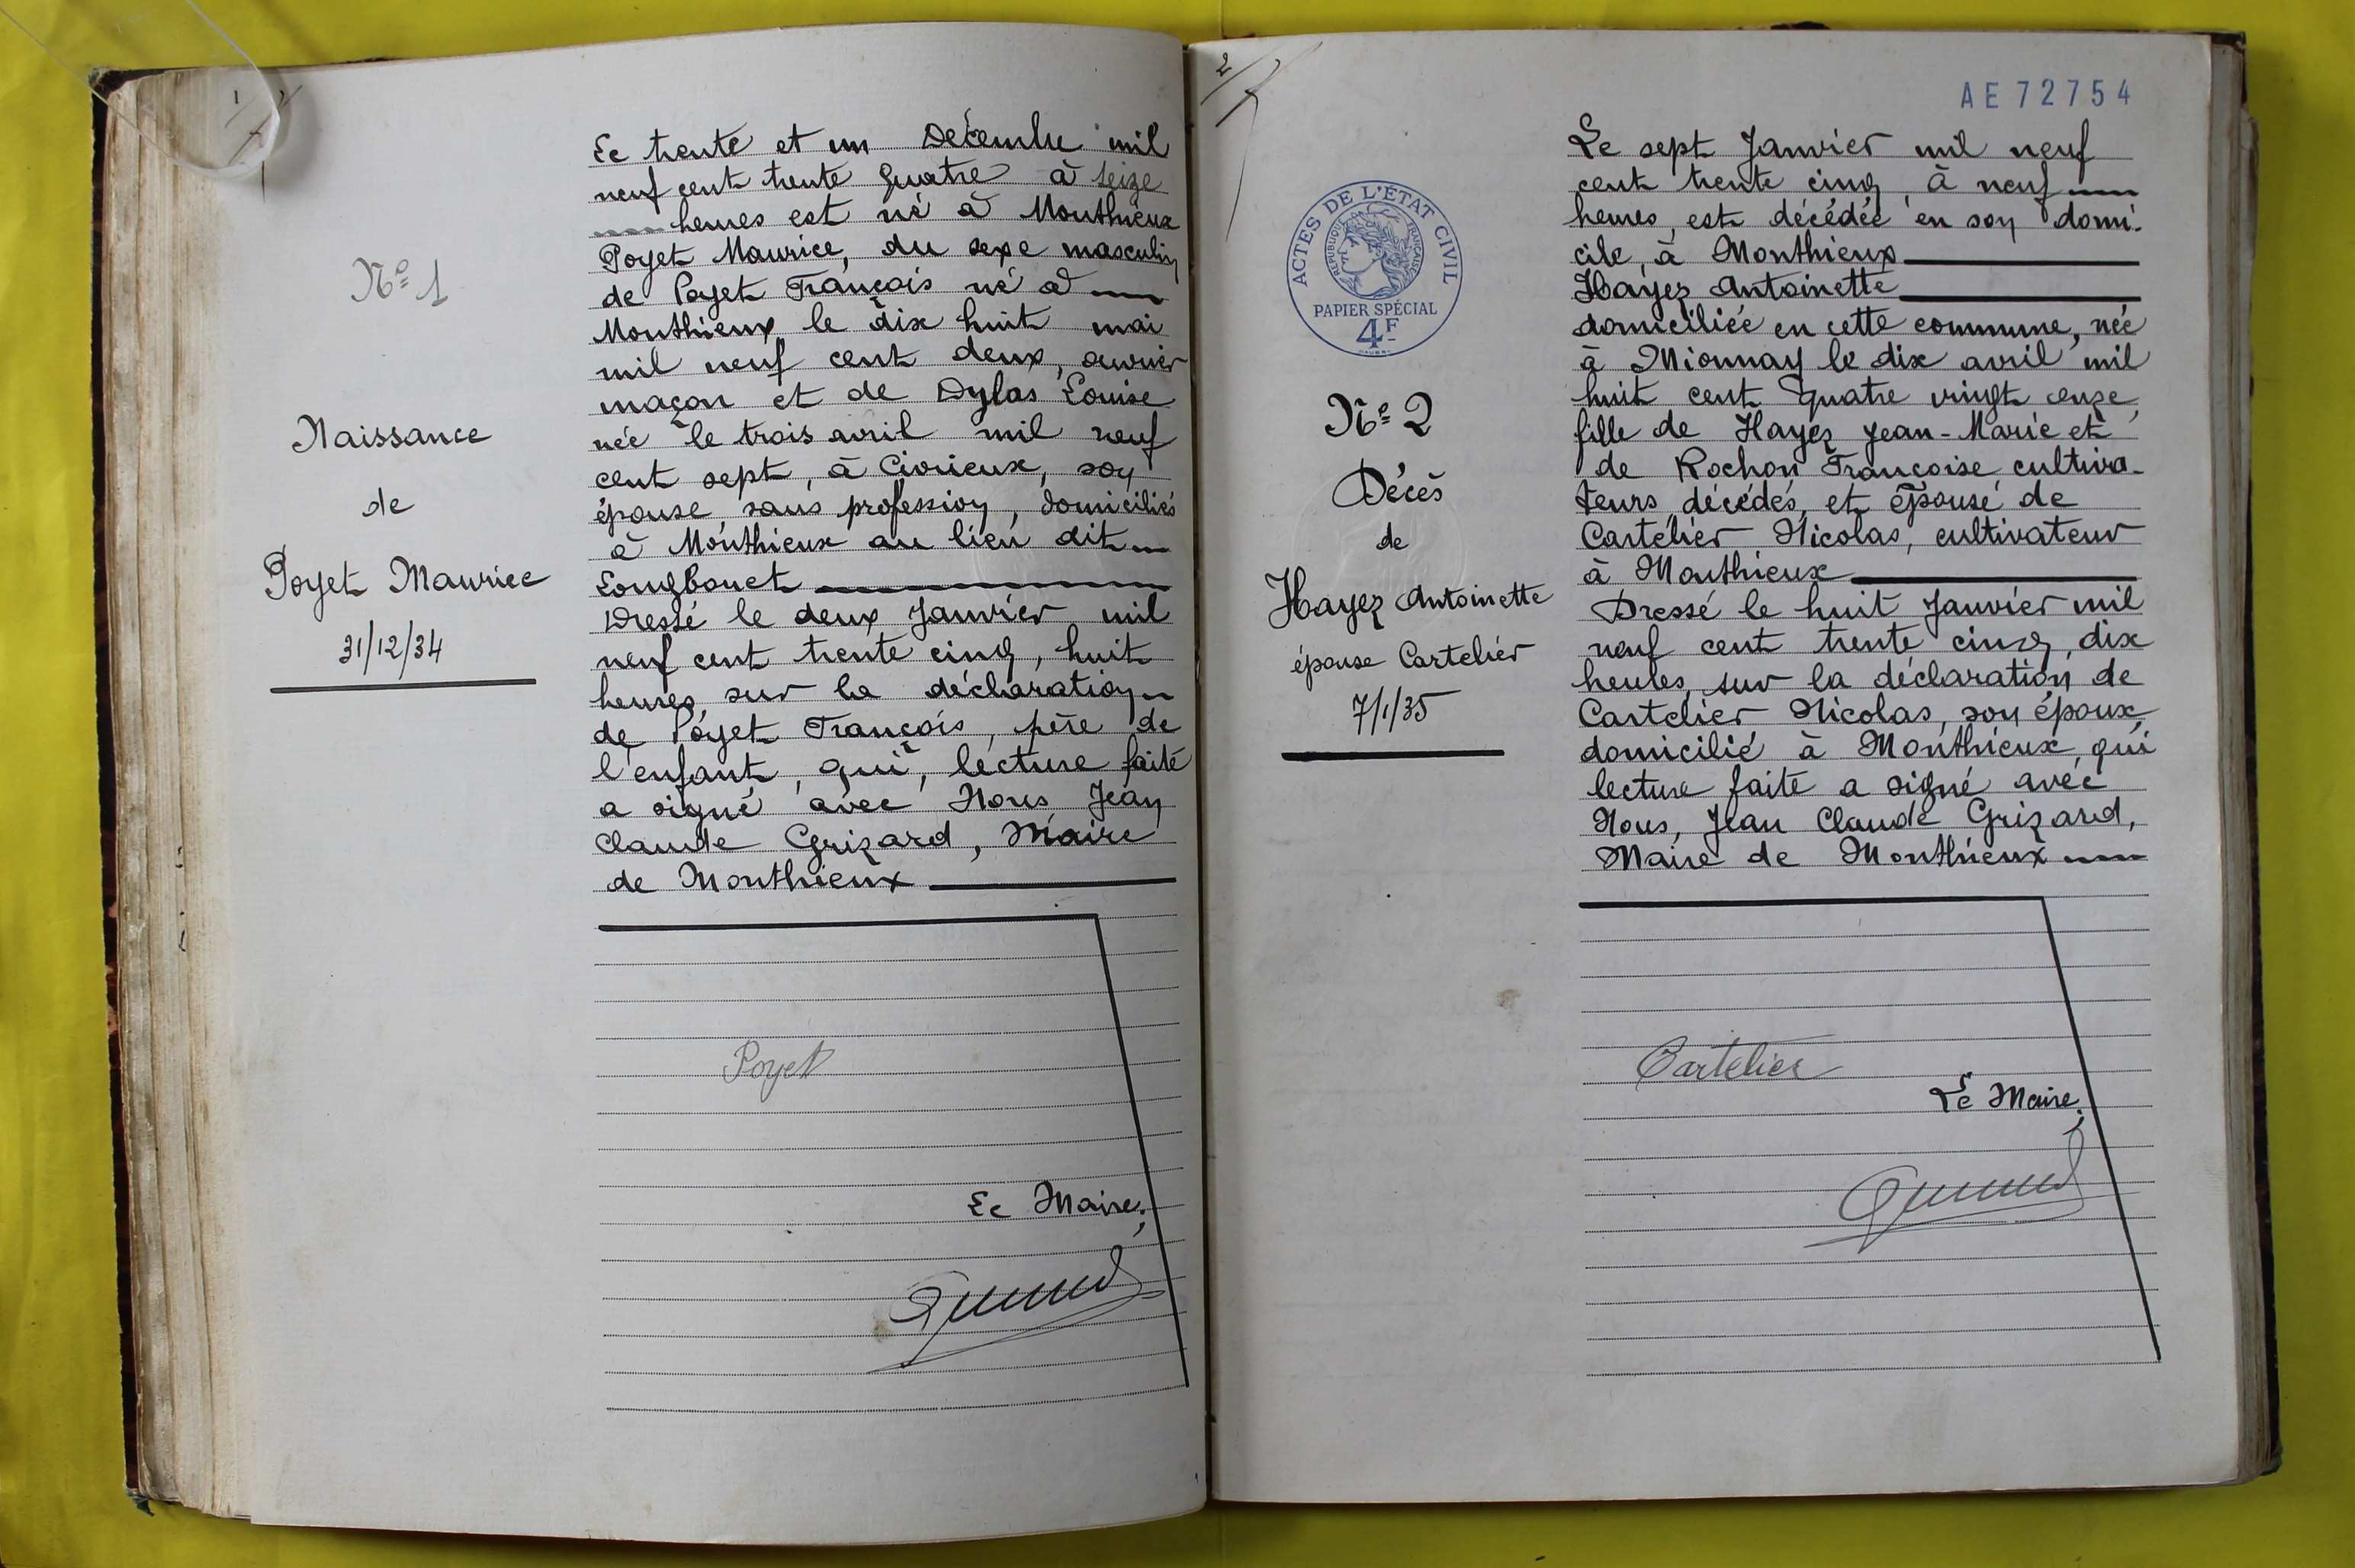 1
N° 1
Naissance
de
Poyet Maurice
31/12/34
Le trente et un Décembre mil
neuf cent trente quatre à seize
heures est né à Monthieux
Poyet Maurice, du sexe masculin
de Poyet François né à
Monthieux le dix huit mai
mil neuf cent deux, ouvrier
maçon et de Dylas Louise
née le trois avril mil neuf
cent sept, à Civrieux, son
épouse, sans profession, domiciliés
à Monthieux au lieu dit
Longbouet
Dressé le deux Janvier mil
neuf cent trente cinq, huit
heures, sur la déclaration
de Poyet François, père de
l'enfant, qui, lecture faite
a signé avec Nous Jean
Claude Grizard, Maire
de Monthieux
Poyet
Le Maire,
2
AE 72754
ACTES DE L'ÉTAT CIVIL
RÉPUBLIQUE FRANÇAISE
PAPIER SPÉCIAL
4F
N° 2
Décès
de
Hayez Antoinette
épouse Cartelier
7/1/35
Le sept Janvier mil neuf
cent trente cinq à neuf
heures, est décédée en son domi-
cile, à Monthieux
Hayez Antoinette
domiciliée en cette commune, née
à Mionnay le dix avril mil
huit cent quatre vingt onze,
fille de Hayez Jean-Marie et
de Rochon Françoise, cultiva-
teurs, décédés, et épouse de
Cartelier Nicolas, cultivateur
à Monthieux
Dressé le huit Janvier mil
neuf cent trente cinq, dix
heures, sur la déclaration de
Cartelier Nicolas, son époux,
domicilié à Monthieux, qui
lecture faite a signé avec
Nous, Jean Claude Grizard,
Maire de Monthieux
Cartelier
Le Maire,